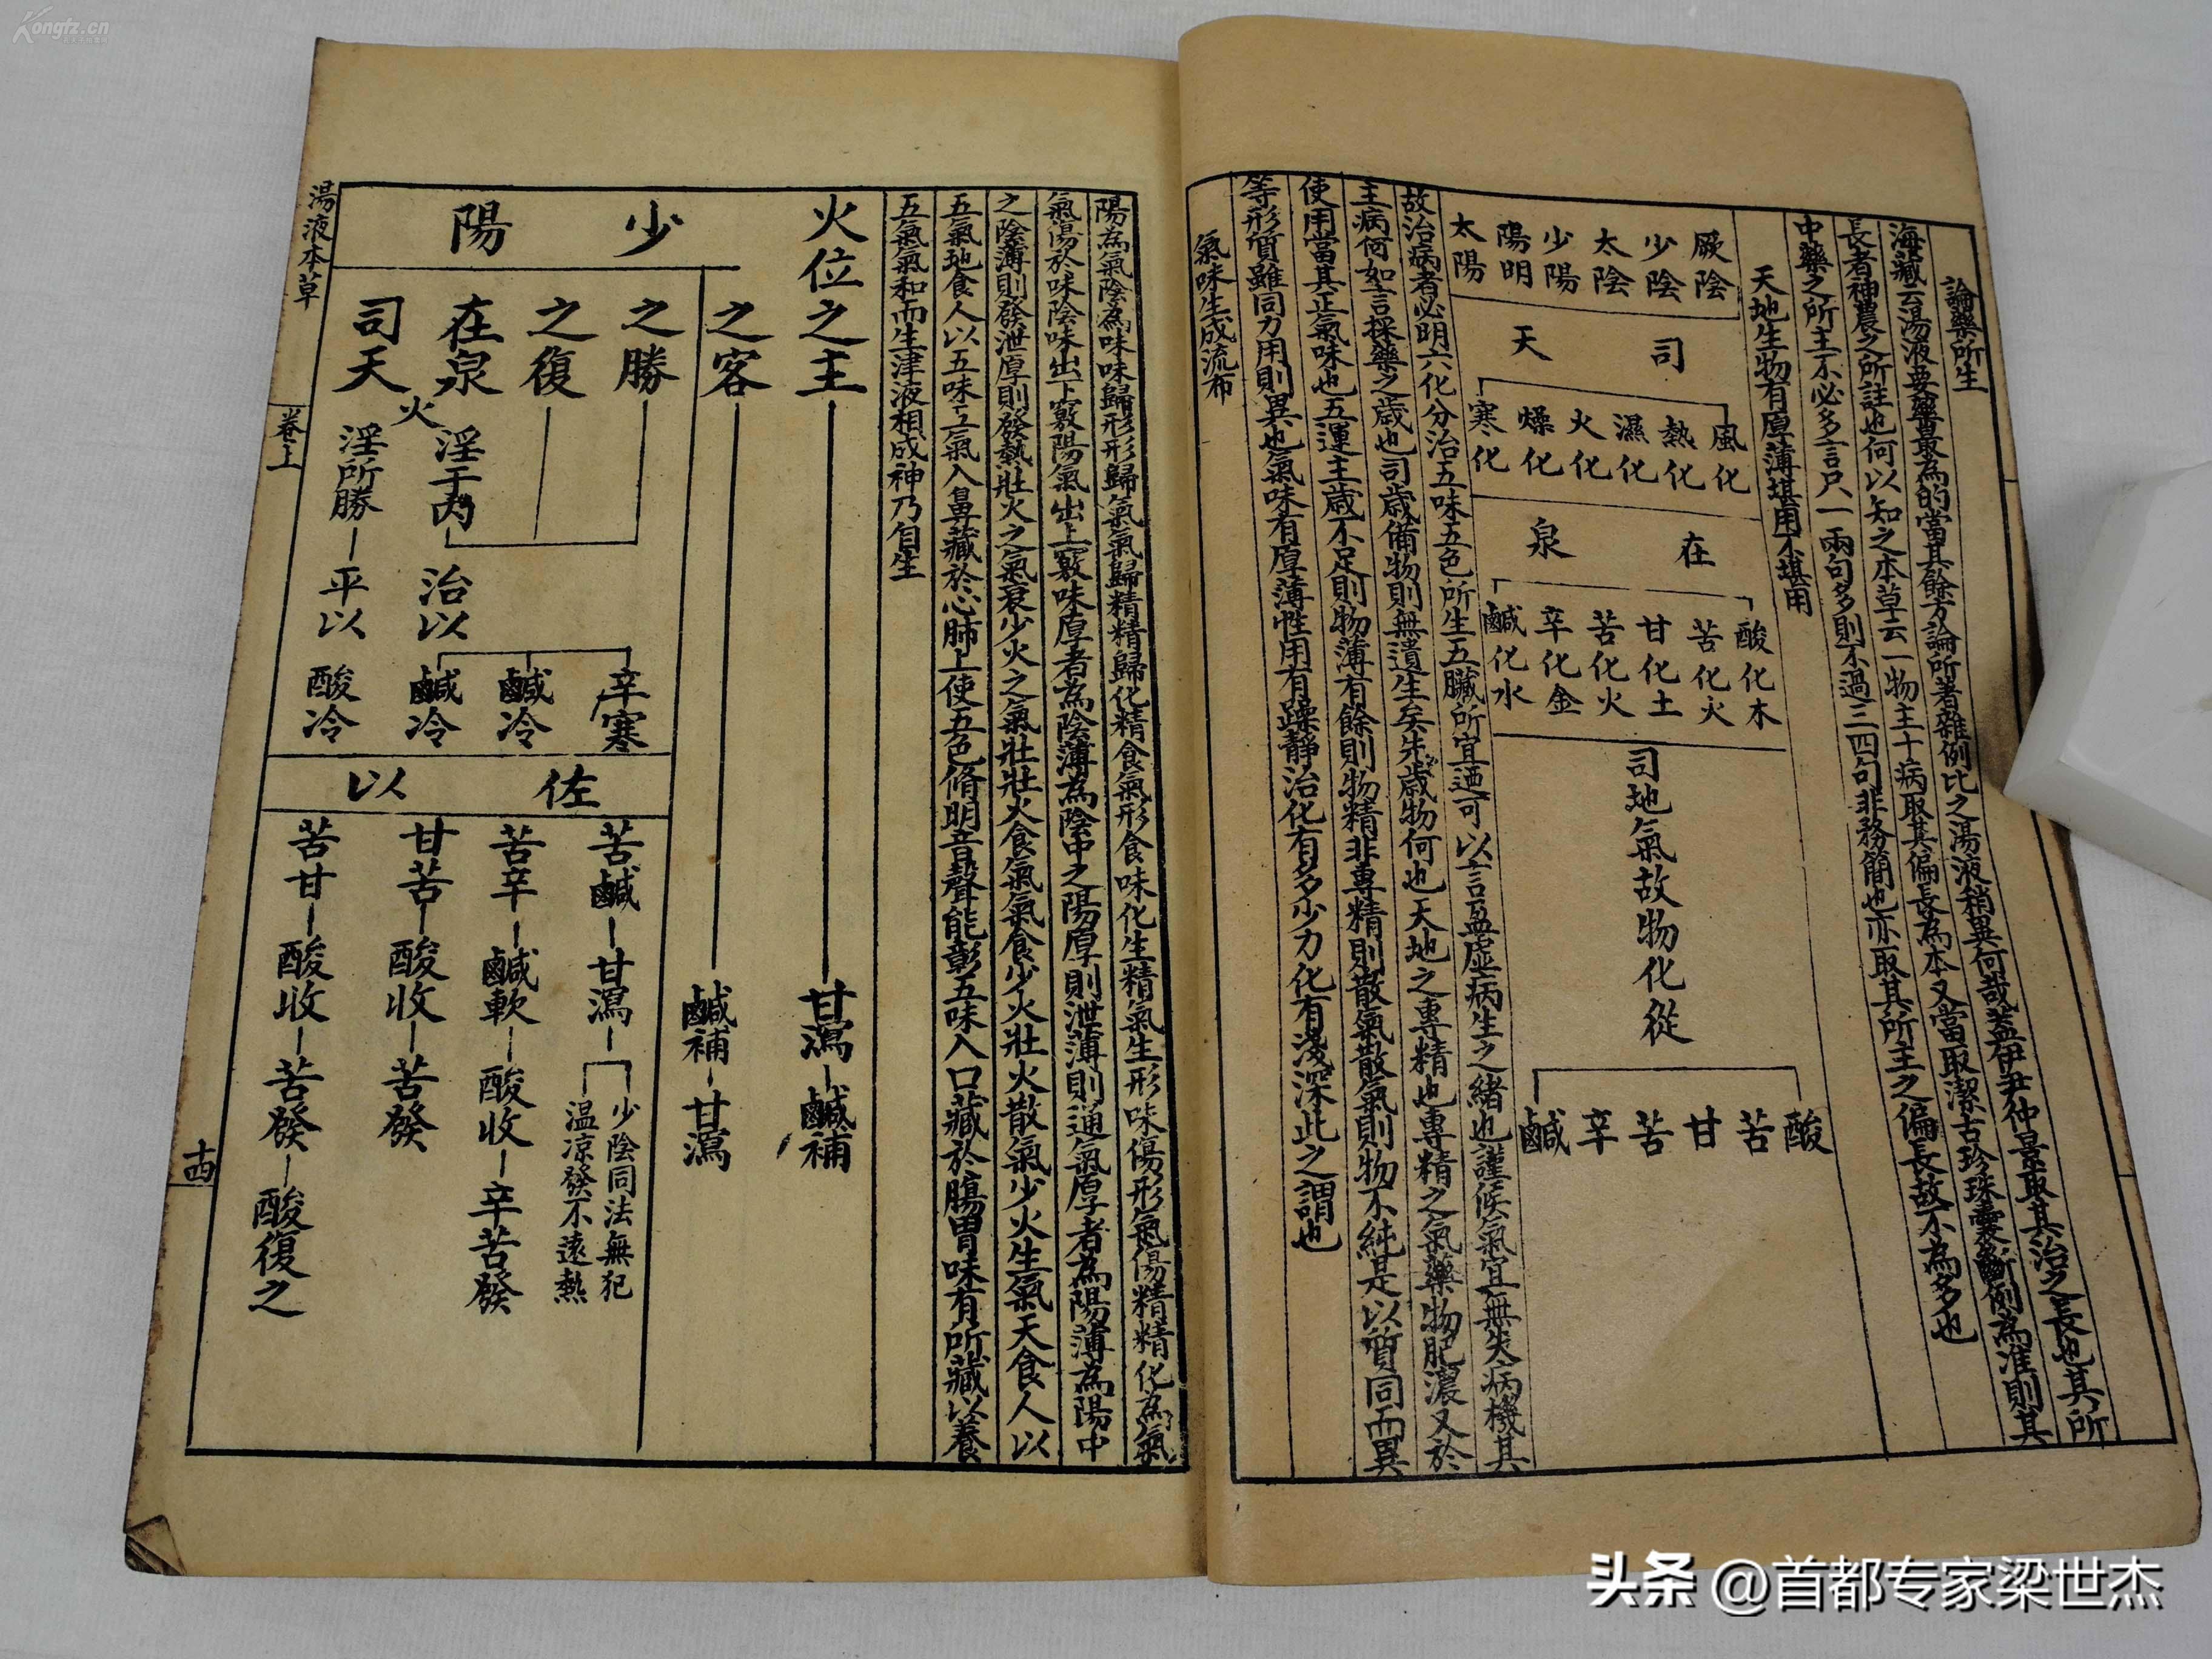 論藥所生
海藏云湯液要藥最為的當其餘方論所著雜例比之湯液稍異何哉蓋伊尹仲景取其治之長也其所
長者神農之所註也何以知之本草云一物主十病取其偏長為本又當取潔古珍珠囊斷例為准則其
中藥之所主不必多言只一兩句多則不過三四句非務簡也亦取其所主之偏長故不為多也
天地生物有厚薄堪用不堪用
厥陰 少陰 太陰 少陽 陽明 太陽
司天
風化 熱化 濕化 火化 燥化 寒化
在泉
酸化木 苦化火 甘化土 苦化火 辛化金 鹹化水
司地氣故物化從
酸 苦 甘 苦 辛 鹹
故治病者必明六化分治五味五色所生五臟所宜迺可以言盈虛病生之緒也謹候氣宜無失病機其
主病何如言採藥之歲也司歲備物則無遺生矣先歲物何也天地之專精也專精之氣藥物肥濃又於
使用當其正氣味也五運主歲不足則物薄有餘則物精非專精則散氣散氣則物不純是以質同而異
等形質雖同力用則異也氣味有厚薄性用有躁靜治化有多少力化有淺深此之謂也
氣味生成流布
陽為氣陰為味味歸形形歸氣氣歸精精歸化精食氣形食味化生精氣生形味傷形氣傷精精化為氣
氣傷於味陰味出下竅陽氣出上竅味厚者為陰薄為陰中之陽厚則泄薄則通氣厚者為陽薄為陽中
之陰薄則發泄厚則發熱壯火之氣衰少火之氣壯壯火食氣氣食少火壯火散氣少火生氣天食人以
五氣地食人以五味五氣入鼻藏於心肺上使五色脩明音聲能彰五味入口藏於腸胃味有所藏以養
五氣氣和而生津液相成神乃自生
火位之主 甘瀉 鹹補
少陽
之客 鹹補 甘瀉
之勝
之復
在泉
司天
火
淫于內 治以
淫所勝 平以
辛寒 鹹冷 鹹冷 酸冷
佐以
苦鹹 甘瀉 少陰同法無犯
温凉發不遠熱
苦辛 鹹軟 酸收 辛苦發
甘苦 酸收 苦發
苦甘 酸收 苦發 酸復之
湯液本草
卷上
十四
Kongfz.cn
头条 @首都专家梁世杰